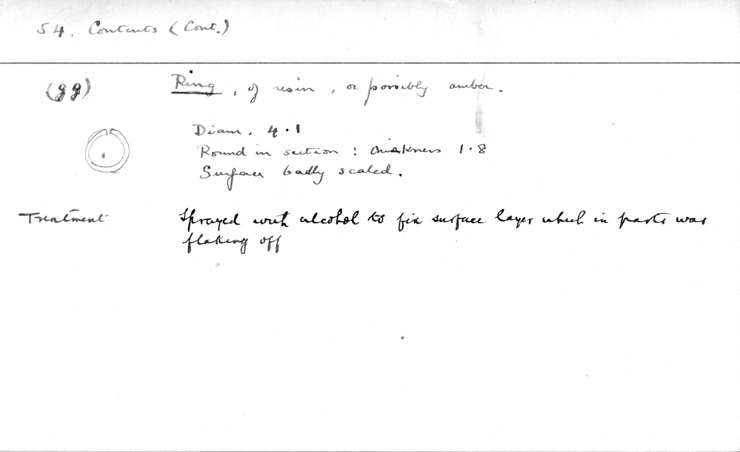 54. Contents (Cont.)
(gg) Ring, of resin, or possibly amber.
Diam. 4.1
Round in section : thickness 1.8
Surface badly scaled.
Treatment Sprayed with alcohol to fix surface layer which in parts was
flaking off